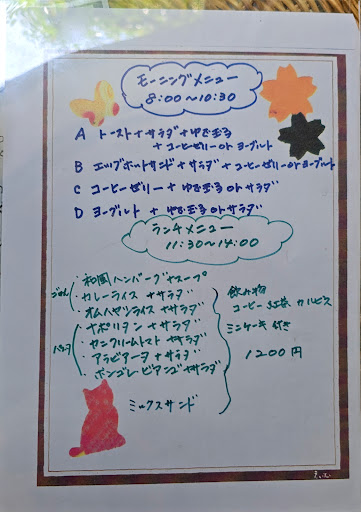 モーニングメニュー
8:00〜10:30
A トースト+サラダ+ゆで玉子
+コーヒーゼリーorヨーグルト
B エッグホットサンド+サラダ+コーヒーゼリーorヨーグルト
C コーヒーゼリー+ゆで玉子orサラダ
D ヨーグルト+ゆで玉子orサラダ
ランチメニュー
11:30〜14:00
ごはん
・和風ハンバーグ+スープ
・カレーライス+サラダ
・オムハヤシライス+サラダ
パスタ
・ナポリタン+サラダ
・カニクリームトマト+サラダ
・アラビアータ+サラダ
・ボンゴレビアンコ+サラダ
ミックスサンド
飲み物
コーヒー 紅茶 カルピス
ミニケーキ付き
1200円